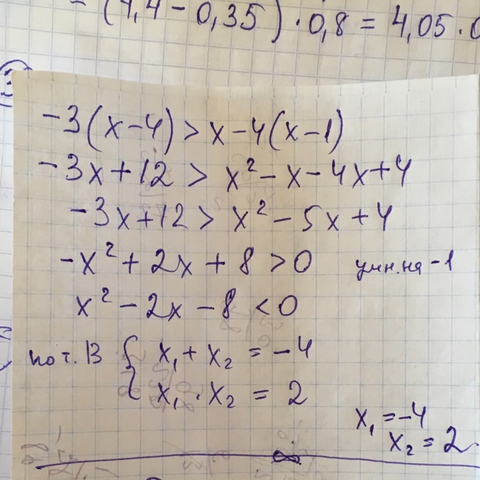 (4,4 - 0,35) · 0,8 = 4,05 · 0
-3(x-4) > x-4(x-1)
-3x+12 > x² - x - 4x + 4
-3x+12 > x² - 5x + 4
-x² + 2x + 8 > 0 умн. на -1
x² - 2x - 8 < 0
по т. В { x₁ + x₂ = -4
{ x₁ · x₂ = 2
x₁ = -4
x₂ = 2